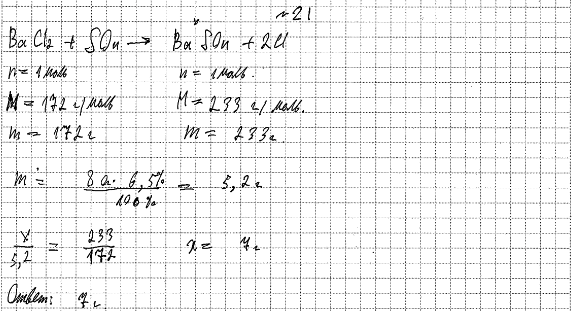 ~21
BaCl₂ + SO₄ → BaSO₄ + 2Cl
n = 1 моль n = 1 моль.
M = 172 г/моль M = 233 г/моль.
m = 172 г m = 233 г
m = 80 · 6,5% / 100% = 5,2 г
x / 5,2 = 233 / 172 x = 7 г
Ответ: 7 г